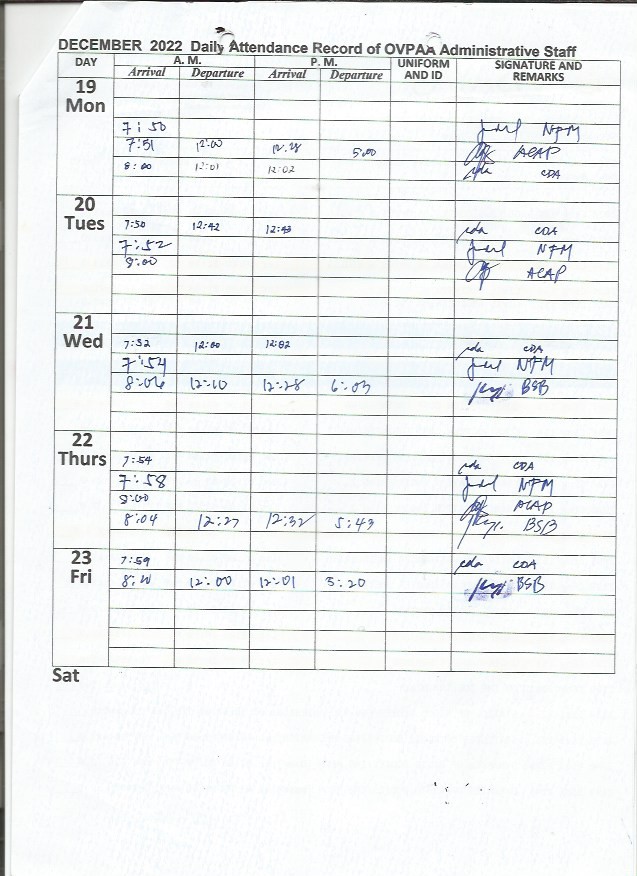 DECEMBER 2022 Daily Attendance Record of OVPAA Administrative Staff
DAY A. M. P. M. UNIFORM AND ID SIGNATURE AND REMARKS
Arrival Departure Arrival Departure
19
Mon
7:50 NFM
7:51 12:00 12:28 5:00 ACAP
8:00 12:01 12:02 CDA
20
Tues
7:50 12:42 12:43 CDA
7:52 NFM
8:00 ACAP
21
Wed
7:52 12:00 12:02 CDA
7:54 NFM
8:06 12:10 12:28 6:03 BSB
22
Thurs
7:54 CDA
7:58 NFM
8:00 ACAP
8:04 12:27 12:32 5:43 BSB
23
Fri
7:59 CDA
12:00 12:01 5:20 BSB
Sat